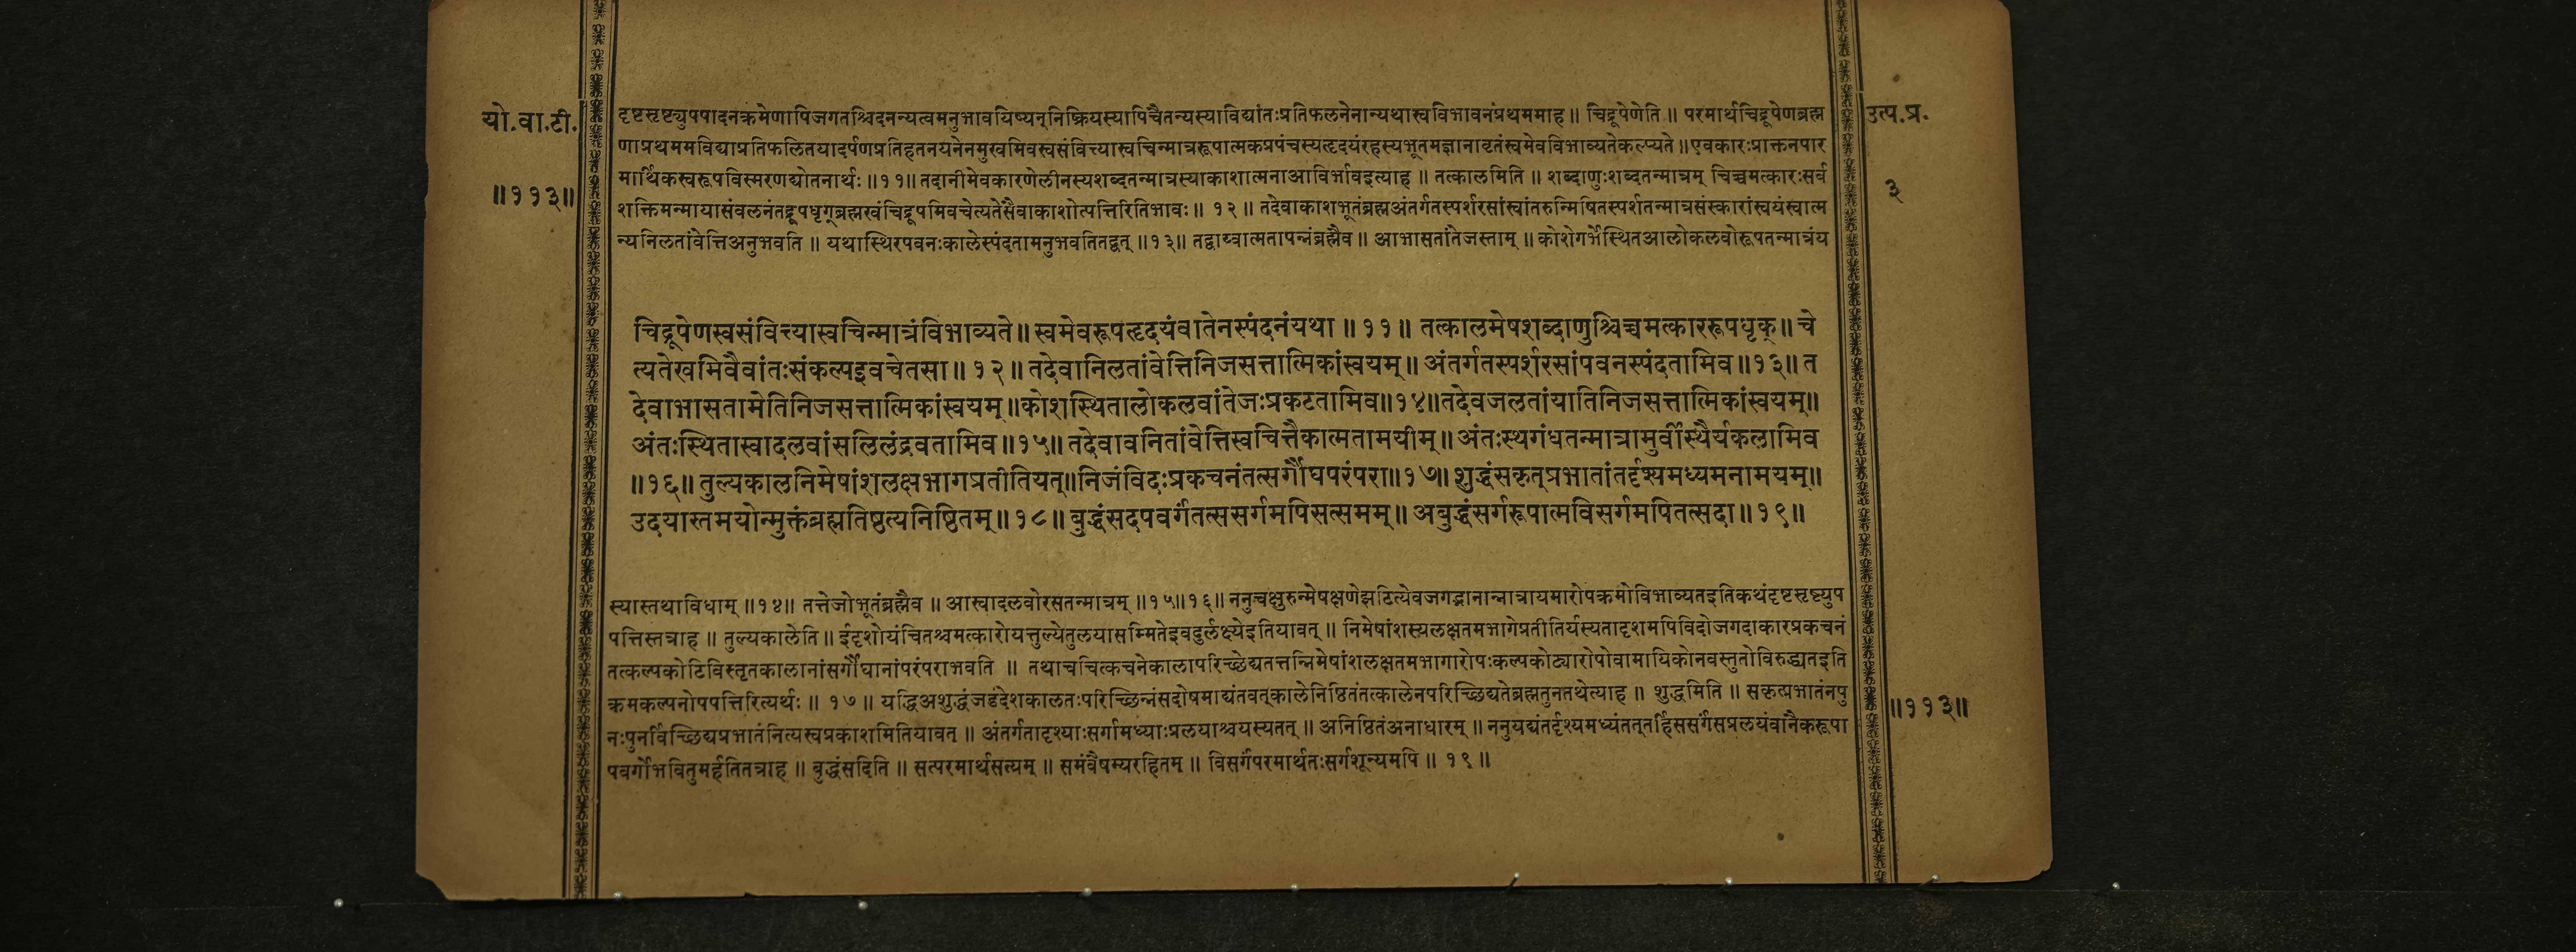 यो.वा.टी.
॥११३॥
दृष्टसृष्ट्युपपादनक्रमेणापिजगतश्चिदनन्यत्वमनुभावयिष्यन्निष्क्रियस्यापिचैतन्यस्याविद्यांतःप्रतिफलनेनान्यथास्वविभावनंप्रथममाह ॥ चिद्रूपेणेति ॥ परमार्थचिद्रूपेणब्रह्म
णाप्रथममविद्याप्रतिफलितयादर्पणप्रतिहतनयनेनमुखमिवस्वसंवित्त्यास्वचिन्मात्ररूपात्मकप्रपंचस्यहृदयंरहस्यभूतमज्ञानावृतंस्वमेवविभाव्यतेकल्प्यते ॥एवकारःप्राक्तनपार
मार्थिकस्वरूपविस्मरणद्योतनार्थः ॥११॥ तदानीमेवकारणेलीनस्यशब्दतन्मात्रस्याकाशात्मनाआविर्भावइत्याह ॥ तत्कालमिति ॥ शब्दाणुःशब्दतन्मात्रम् चिच्चमत्कारःसर्व
शक्तिमन्मायासंवलनंतद्रूपधृग्ब्रह्मखंचिद्रूपमिवचेत्यतेसैवाकाशोत्पत्तिरितिभावः ॥ १२ ॥ तदेवाकाशभूतंब्रह्मअंतर्गतस्पर्शरसांस्वांतरुन्मिषितस्पर्शतन्मात्रसंस्कारांस्वयंस्वात्म
न्यनिलतांवेत्तिअनुभवति ॥ यथास्थिरपवनःकालेस्पंदतामनुभवतितद्वत् ॥१३॥ तद्वाय्वात्मतापन्नंब्रह्मैव ॥ आभासतांतेजस्ताम् ॥ कोशेगर्भेस्थितआलोकलवोरूपतन्मात्रंय
उत्प.प्र.
३
चिद्रूपेणस्वसंवित्त्यास्वचिन्मात्रंविभाव्यते॥ स्वमेवरूपहृदयंवातेनस्पंदनंयथा ॥ ११॥ तत्कालमेषशब्दाणुश्चिच्चमत्काररूपधृक्॥ चे
त्यतेखमिवैवांतःसंकल्पइवचेतसा॥ १२॥ तदेवानिलतांवेत्तिनिजसत्तात्मिकांस्वयम्॥ अंतर्गतस्पर्शरसांपवनस्पंदतामिव॥१३॥ त
देवाभासतामेतिनिजसत्तात्मिकांस्वयम्॥कोशस्थितालोकलवांतेजःप्रकटतामिव॥१४॥तदेवजलतांयातिनिजसत्तात्मिकांस्वयम्॥
अंतःस्थितास्वादलवांसलिलंद्रवतामिव॥१५॥ तदेवावनितांवेत्तिस्वचित्तैकात्मतामयीम्॥ अंतःस्थगंधतन्मात्रामुर्वीस्थैर्यकलामिव
॥१६॥ तुल्यकालनिमेषांशलक्षभागप्रतीतियत्॥निजंविदःप्रकचनंतत्सर्गौघपरंपरा॥१७॥ शुद्धंसकृत्प्रभातांतर्दृश्यमध्यमनामयम्॥
उदयास्तमयोन्मुक्तंब्रह्मतिष्ठत्यनिष्ठितम्॥१८॥ बुद्धंसदपवर्गंतत्ससर्गमपिसत्समम्॥ अबुद्धंसर्गरूपात्मविसर्गमपितत्सदा॥१९॥
स्यास्तथाविधाम् ॥१४॥ तत्तेजोभूतंब्रह्मैव ॥ आस्वादलवोरसतन्मात्रम् ॥१५॥१६॥ ननुचक्षुरुन्मेषक्षणेझटित्येवजगद्भानान्नात्रायमारोपक्रमोविभाव्यतइतिकथंदृष्टसृष्ट्युप
पत्तिस्तत्राह ॥ तुल्यकालेति ॥ ईदृशोयंचितश्चमत्कारोयत्तुल्येतुलयासम्मितेइवदुर्लक्ष्येइतियावत् ॥ निमेषांशस्यलक्षतमभागेप्रतीतिर्यस्यतादृशमपिविदोजगदाकारप्रकचनं
तत्कल्पकोटिविस्तृतकालानांसर्गौघानांपरंपराभवति ॥ तथाचचित्कचनेकालापरिच्छेद्यतत्तन्निमेषांशलक्षतमभागारोपःकल्पकोट्यारोपोवामायिकोनवस्तुतोविरुद्ध्यतइति
क्रमकल्पनोपपत्तिरित्यर्थः ॥ १७ ॥ यद्धिअशुद्धंजडंदेशकालतःपरिच्छिन्नंसदोषमाद्यंतवत्कालेनिष्ठितंतत्कालेनपरिच्छिद्यतेब्रह्मतुनतथेत्याह ॥ शुद्धमिति ॥ सकृत्प्रभातंनपु
नःपुनर्विच्छिद्यप्रभातंनित्यस्वप्रकाशमितियावत् ॥ अंतर्गतादृश्याःसर्गामध्याःप्रलयाश्चयस्यतत् ॥ अनिष्ठितंअनाधारम् ॥ ननुयद्यंतर्दृश्यमध्यंतत्तर्हिससर्गंसप्रलयंवानैकरूपा
पवर्गोभवितुमर्हतितत्राह ॥ बुद्धंसदिति ॥ सत्परमार्थसत्यम् ॥ समंवैषम्यरहितम् ॥ विसर्गंपरमार्थतःसर्गशून्यमपि ॥ १९ ॥
॥११३॥